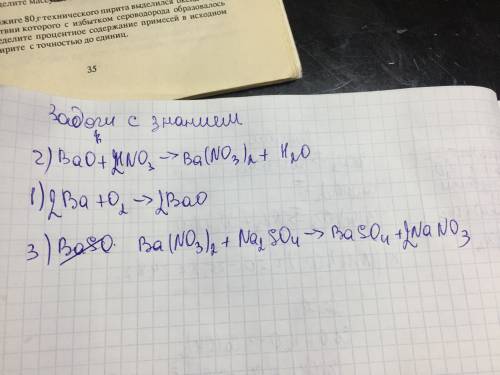 делите массу
жиге 80 г технического пирита выделился оксид
ствии которого с избытком сероводорода образовалось
еделите процентное содержание примесей в исходном
ирите с точностью до единиц.
35
Задачи с знанием
2) BaO + 2HNO₃ → Ba(NO₃)₂ + H₂O
1) 2Ba + O₂ → 2BaO
3) BaSO Ba(NO₃)₂ + Na₂SO₄ → BaSO₄ + 2NaNO₃